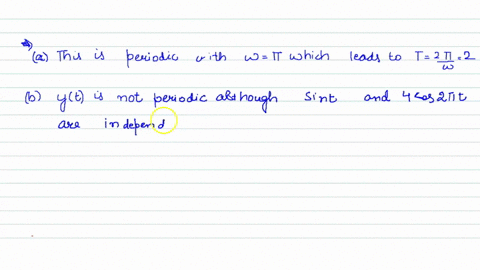 (a) This is periodic with ω=π which leads to T=2π/ω=2
(b) y(t) is not periodic although Sint and 4 cos2πt
are independ